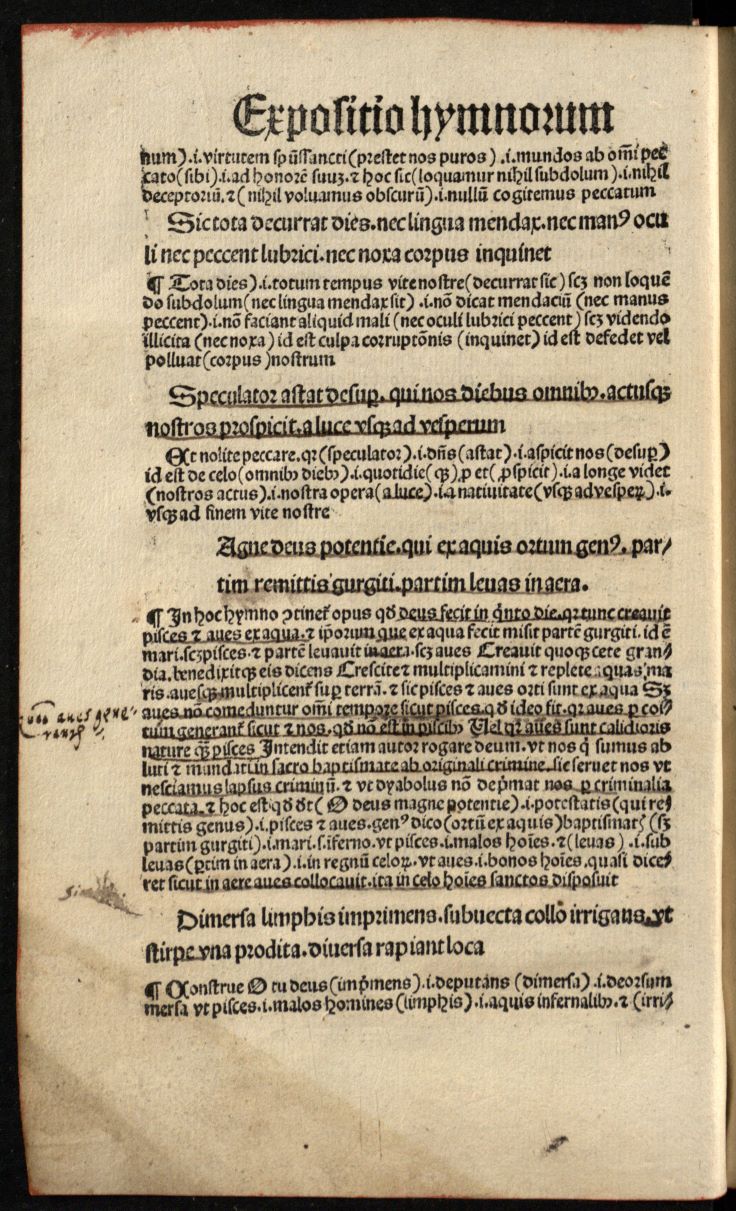 Expositio hymnorum
num).i.virtutem spūssancti(prestet nos puros).i.mundos ab om̄i pec
cato(sibi).i.ad honorē suuꝫ.⁊ hoc sic(loquamur nihil subdolum).i.nihil
deceptoriū.⁊(nihil voluamus obscurū).i.nullū cogitemus peccatum
Sic tota decurrat dies.nec lingua mendax.nec manꝰ ocu
li nec peccent lubrici.nec noxa corpus inquinet
¶ Tota dies).i.totum tempus vite nostre(decurrat sic)scꝫ non loquē
do subdolum(nec lingua mendax sit).i.nō dicat mendaciū(nec manus
peccent).i.nō faciant aliquid mali(nec oculi lubrici peccent)scꝫ videndo
illicita(nec noxa)id est culpa corruptōnis(inquinet)id est defedet vel
polluat(corpus)nostrum
Speculator astat desuꝑ.qui nos diebus omnibꝫ.actusqꝫ
nostros prospicit.a luce vsqꝫ ad vesperum
Et nolite peccare.qꝛ(speculator).i.dn̄s(astat).i.aspicit nos(desuꝑ)
id est de celo(omnibꝫ diebꝫ).i.quotidie(qꝫ)ꝓ et(ꝓspicit).i.a longe videt
(nostros actus).i.nostra opera(a luce).i.a natiuitate(vsqꝫ ad vesperꝝ).i.
vsqꝫ ad finem vite nostre
Magne deus potentie.qui ex aquis ortum genꝰ.par⸗
tim remittis gurgiti.partim leuas in aera.
¶ In hoc hymno ꝯtinet᷑ opus qđ deus fecit in q̇nto die.qꝛ tunc creauit
pisces ⁊ aues ex aqua.⁊ ip̄orum que ex aqua fecit misit partē gurgiti.id ē
mari.scꝫ pisces.⁊ partē leuauit in aera.scꝫ aues Creauit quoqꝫ cete gran⸗
dia.benedixitqꝫ eis dicens Crescite ⁊ multiplicamini ⁊ replete aquas ma
ris.auesqꝫ multiplicent᷑ suꝑ terrā.⁊ sic pisces ⁊ aues orti sunt ex aqua Sꝫ
aues nō comeduntur om̄i tempore sicut pisces.qđ ideo fit.qꝛ aues ꝑ coi⸗
tum generant᷑ sicut ⁊ nos.qđ nō est in piscibꝫ Vel qꝛ aues sunt calidioris
nature qꝫ̄ pisces Intendit etiam autor rogare deum.vt nos q̇ sumus ab
luti ⁊ mundati in sacro baptismate ab originali crimine.sic seruet nos vt
nesciamus lapsus criminū.⁊ vt dyabolus nō dep̄mat nos ꝑ criminalia
peccata.⁊ hoc est qđ đt(O deus magne potentie).i.potestatis(qui re⸗
mittis genus).i.pisces ⁊ aues.genꝰ dico(ortū ex aquis)baptismatꝭ(sꝫ
partim gurgiti).i.mari.s.īferno.vt pisces.i.malos hoīes.⁊(leuas).i.sub
leuas(ꝑtim in aera).i.in regnū celoꝝ.vt aues.i.bonos hoīes.quasi dice⸗
ret sicut in aere aues collocauit.ita in celo hoīes sanctos disposuit
Dimersa limphis imprimens.subuecta collo irrigans.vt
stirpe vna prodita.diuersa rapiant loca
¶ Construe O tu deus(imp̄mens).i.deputans(dimersa).i.deorsum
mersa vt pisces.i.malos homines(limphis).i.aquis infernalibꝫ.⁊(irri⸗